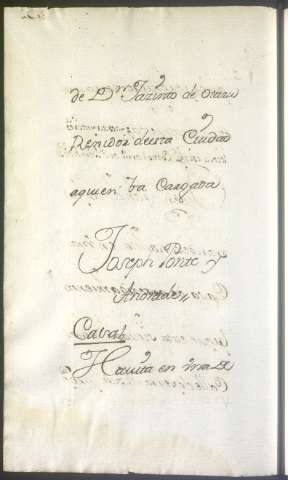 de Dn Jazinto de otazu
Rexidor desta Ciudad
aquien ba Cargada
Joseph Ponte y
Andrade
Casab
Havita en una